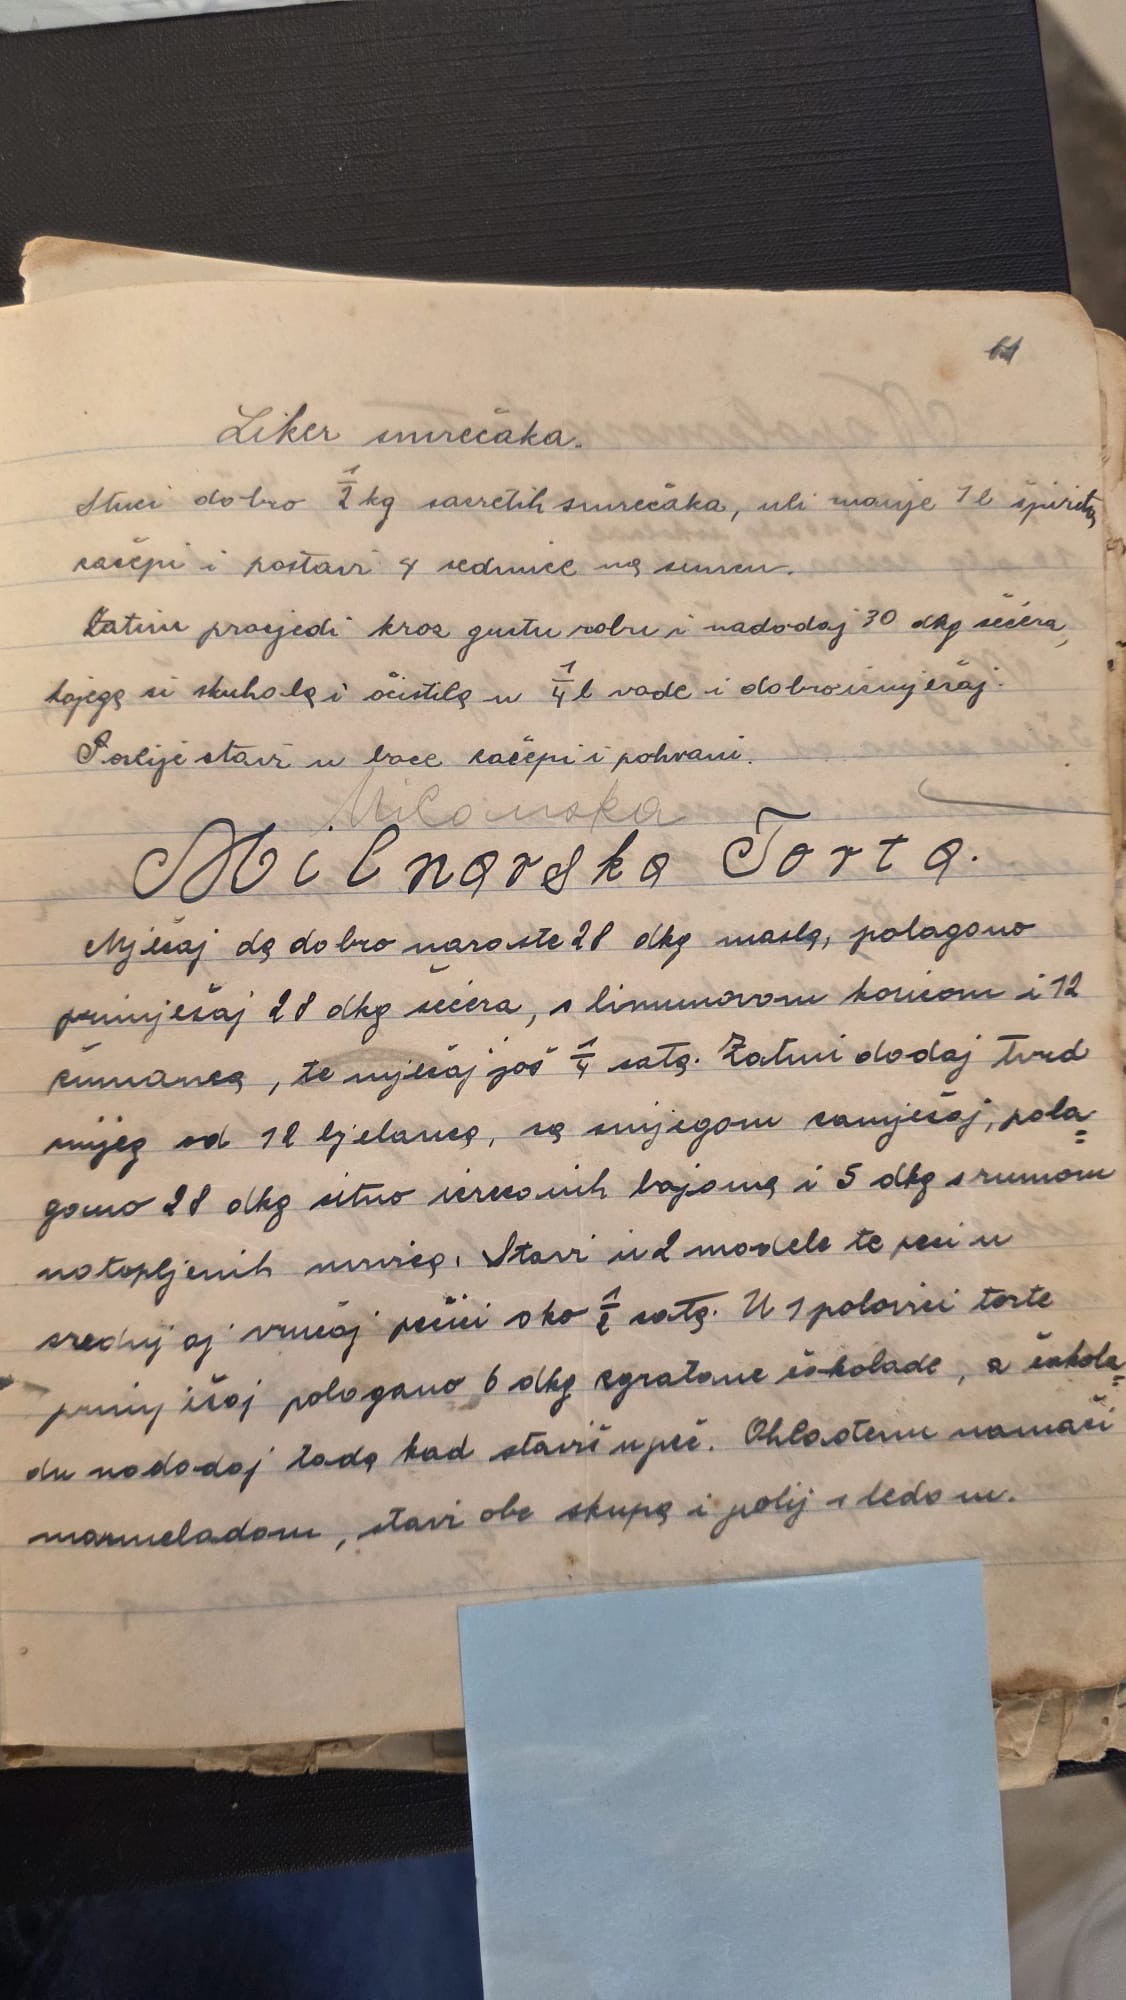 61
Liker smrečaka.
Stuci dobro 1/2 kg zavretih smrečaka, uli manje 1 l špirita,
začepi i postavi 4 sedmice na suncu.
Zatim procjedi kroz gustu robu i nadodaj 30 dkg šećera,
kojega si skuhala i očistila u 1/4 l vode i dobro izmješaj.
Poslije stavi u boce začepi i pohrani.
Milanska
Milnarska Torta.
Mješaj da dobro naraste 28 dkg masla, polagano
primješaj 28 dkg šećera, s limunovom koricom i 12
žumanca, te mješaj još 1/4 sata. Zatim dodaj tvrd
snijeg od 12 bjelanca, sa snijegom zamješaj, pola=
gano 28 dkg sitno izrezanih bajama i 5 dkg s rumom
natopljenih mrvica. Stavi u 2 modele te peci u
srednjoj vrućoj pećici oko 1/2 sata. U 1 polovici torte
primješaj polagano 6 dkg zgratane čokolade, a čokola=
du nadodaj tada kad staviš u peć. Ohlađenu namaži
marmeladom, stavi obe skupa i polij s ledom.